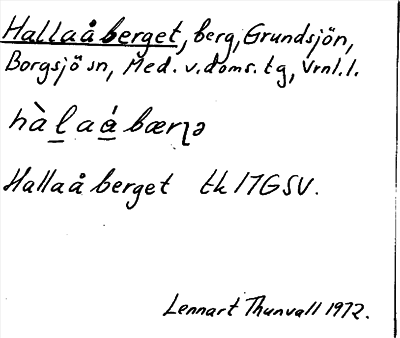 Hallaåberget, berg, Grundsjön,
Borgsjö sn, Med. v. doms. tg, Vrnl. l.
hàl̲aá̲bærɳə
Hallaåberget tk 17GSV.
Lennart Thunvall 1972.